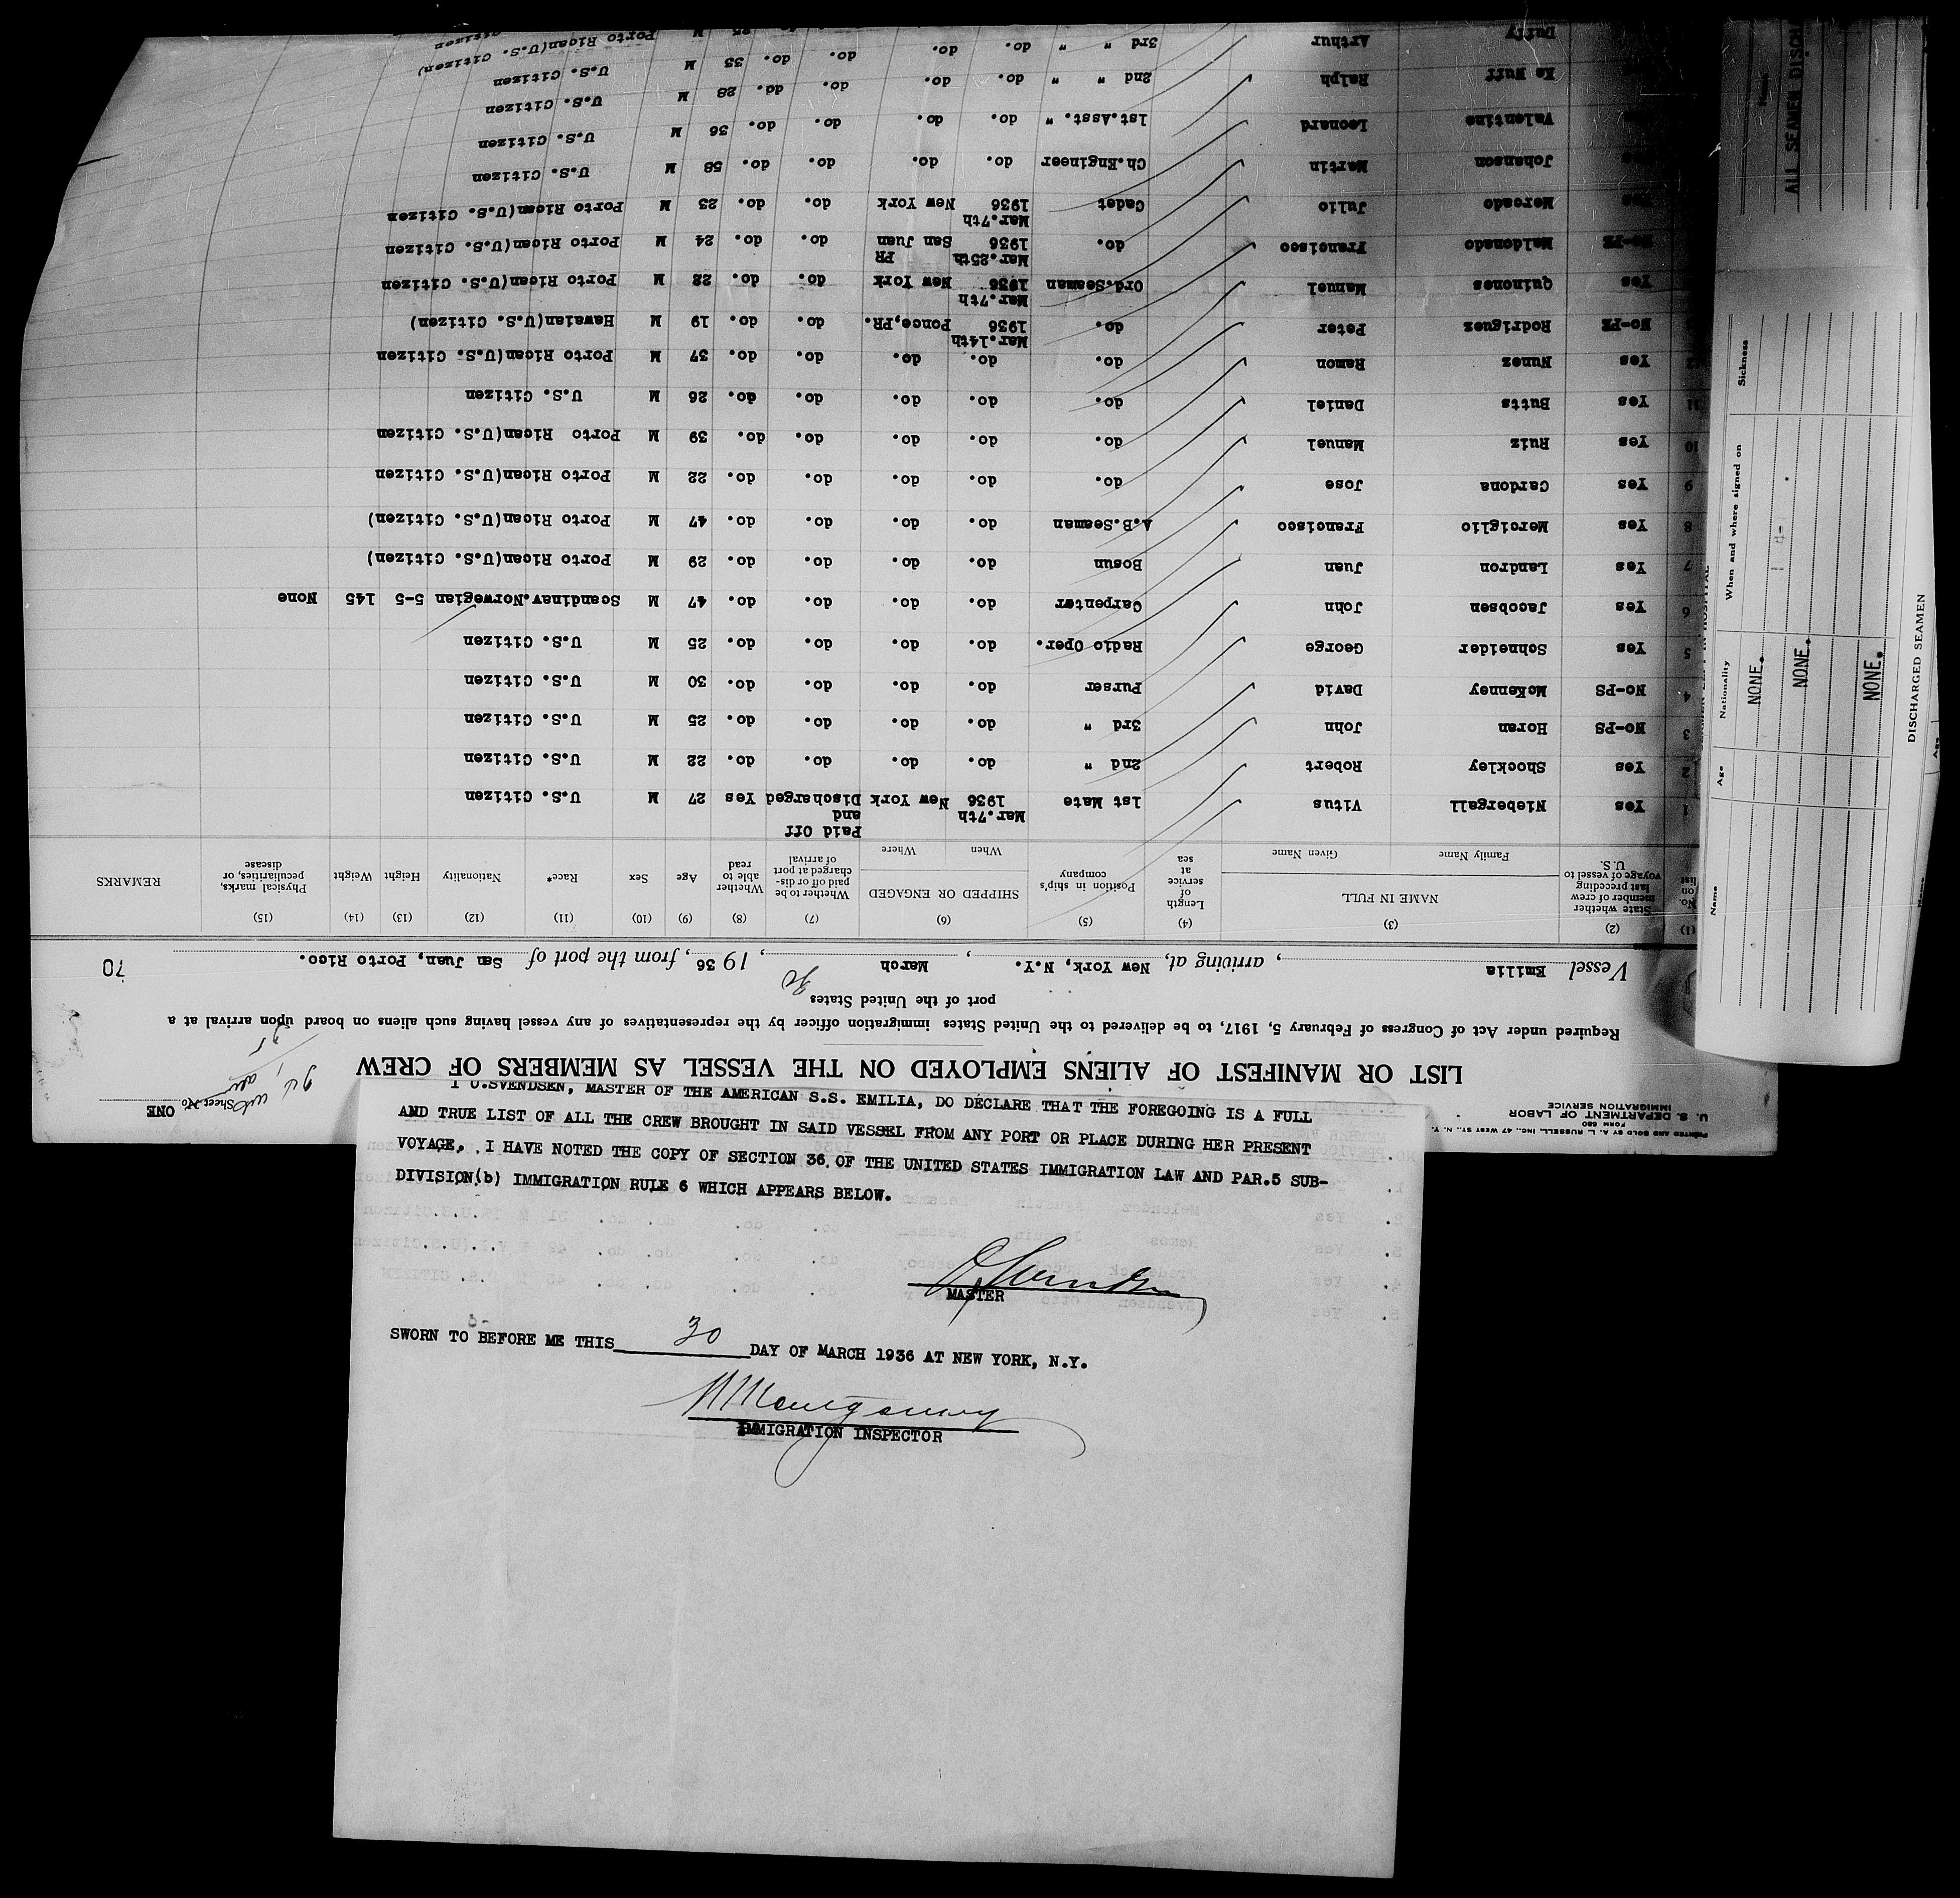 PRINTED AND SOLD BY A. L. RUSSELL, INC., 47 WEST ST., N. Y.
FORM 680
U. S. DEPARTMENT OF LABOR
IMMIGRATION SERVICE
Sheet No. ONE
LIST OR MANIFEST OF ALIENS EMPLOYED ON THE VESSEL AS MEMBERS OF CREW
Required under Act of Congress of February 5, 1917, to be delivered to the United States immigration officer by the representatives of any vessel having such aliens on board upon arrival at a
port of the United States
Vessel Emilia, arriving at, New York, N.Y., March 30, 1936, from the port of San Juan, Porto Rico. 70
(1) (2) (3) (4) (5) (6) (7) (8) (9) (10) (11) (12) (13) (14) (15)
No. on list State whether member of crew last preceding voyage of vessel to U.S. NAME IN FULL Family Name Given Name Length of service at sea Position in ship's company SHIPPED OR ENGAGED When Where Whether to be paid off or discharged at port of arrival Whether able to read Age Sex Race* Nationality Height Weight Physical marks, peculiarities, or disease REMARKS
Paid Off
and
1 Yes Niebergall Vitus 1st Mate Mar.7th 1936 New York Discharged Yes 27 M U.S. Citizen
2 Yes Shockley Robert 2nd " do. do. do. do. 22 M U.S. Citizen
3 No-PS Horan John 3rd " do. do. do. do. 25 M U.S. Citizen
4 No-PS McKenney David Purser do. do. do. do. 30 M U.S. Citizen
5 Yes Schneider George Radio Oper. do. do. do. do. 25 M U.S. Citizen
6 Yes Jacobsen John Carpenter do. do. do. do. 47 M Scandinav.Norwegian 5-5 145 None
7 Yes Landron Juan Bosun do. do. do. do. 29 M Porto Rican(U.S. Citizen)
8 Yes Merciglio Francisco A.B.Seaman do. do. do. do. 47 M Porto Rican(U.S. Citizen)
9 Yes Cardona Jose do. do. do. do. do. 22 M Porto Rican(U.S. Citizen
10 Yes Ruiz Manuel do. do. do. do. do. 39 M Porto Rican(U.S. Citizen
11 Yes Butts Daniel do. do. do. do. do. 26 M U.S. Citizen
12 Yes Nunez Ramon do. do. do. do. do. 37 M Porto Rican(U.S. Citizen
No-PE Rodriguez Peter do. Mar.14th 1936 Ponce,PR. do. do. 19 M Hawaian(U.S. Citizen)
Yes Quinones Manuel Ord.Seaman Mar.7th 1936 New York do. do. 22 M Porto Rican(U.S. Citizen
No-PE Maldonado Francisco do. Mar.25th 1936 San Juan PR do. do. 24 M Porto Rican(U.S. Citizen
Yes Mercado Julio Cadet Mar.7th 1936 New York do. do. 23 M Porto Rican(U.S. Citizen
Johanson Martin Ch.Engineer do. do. do. do. 58 M U.S. Citizen
Valentine Leonard 1st.Asst. " do. do. do. do. 36 M U.S. Citizen
Ke Nuff Ralph 2nd " " do. do. do. do. 28 M U.S. Citizen
Duffy Arthur 3rd " " do. do. do. do. 33 M U.S. Citizen
25 M Porto Rican(U.S. Citizen)
Porto Rican(U.S. Citizen
I O.SVENDSEN, MASTER OF THE AMERICAN S.S. EMILIA, DO DECLARE THAT THE FOREGOING IS A FULL
AND TRUE LIST OF ALL THE CREW BROUGHT IN SAID VESSEL FROM ANY PORT OR PLACE DURING HER PRESENT
VOYAGE. I HAVE NOTED THE COPY OF SECTION 36 OF THE UNITED STATES IMMIGRATION LAW AND PAR.5 SUB-
DIVISION(b) IMMIGRATION RULE 6 WHICH APPEARS BELOW.
O Svendsen
MASTER
SWORN TO BEFORE ME THIS 30 DAY OF MARCH 1936 AT NEW YORK, N.Y.
Montgomery
IMMIGRATION INSPECTOR
ALL SEAMEN DISCH
Name Age Nationality When and where signed on Sickness
NONE.
NONE.
NONE.
DISCHARGED SEAMEN